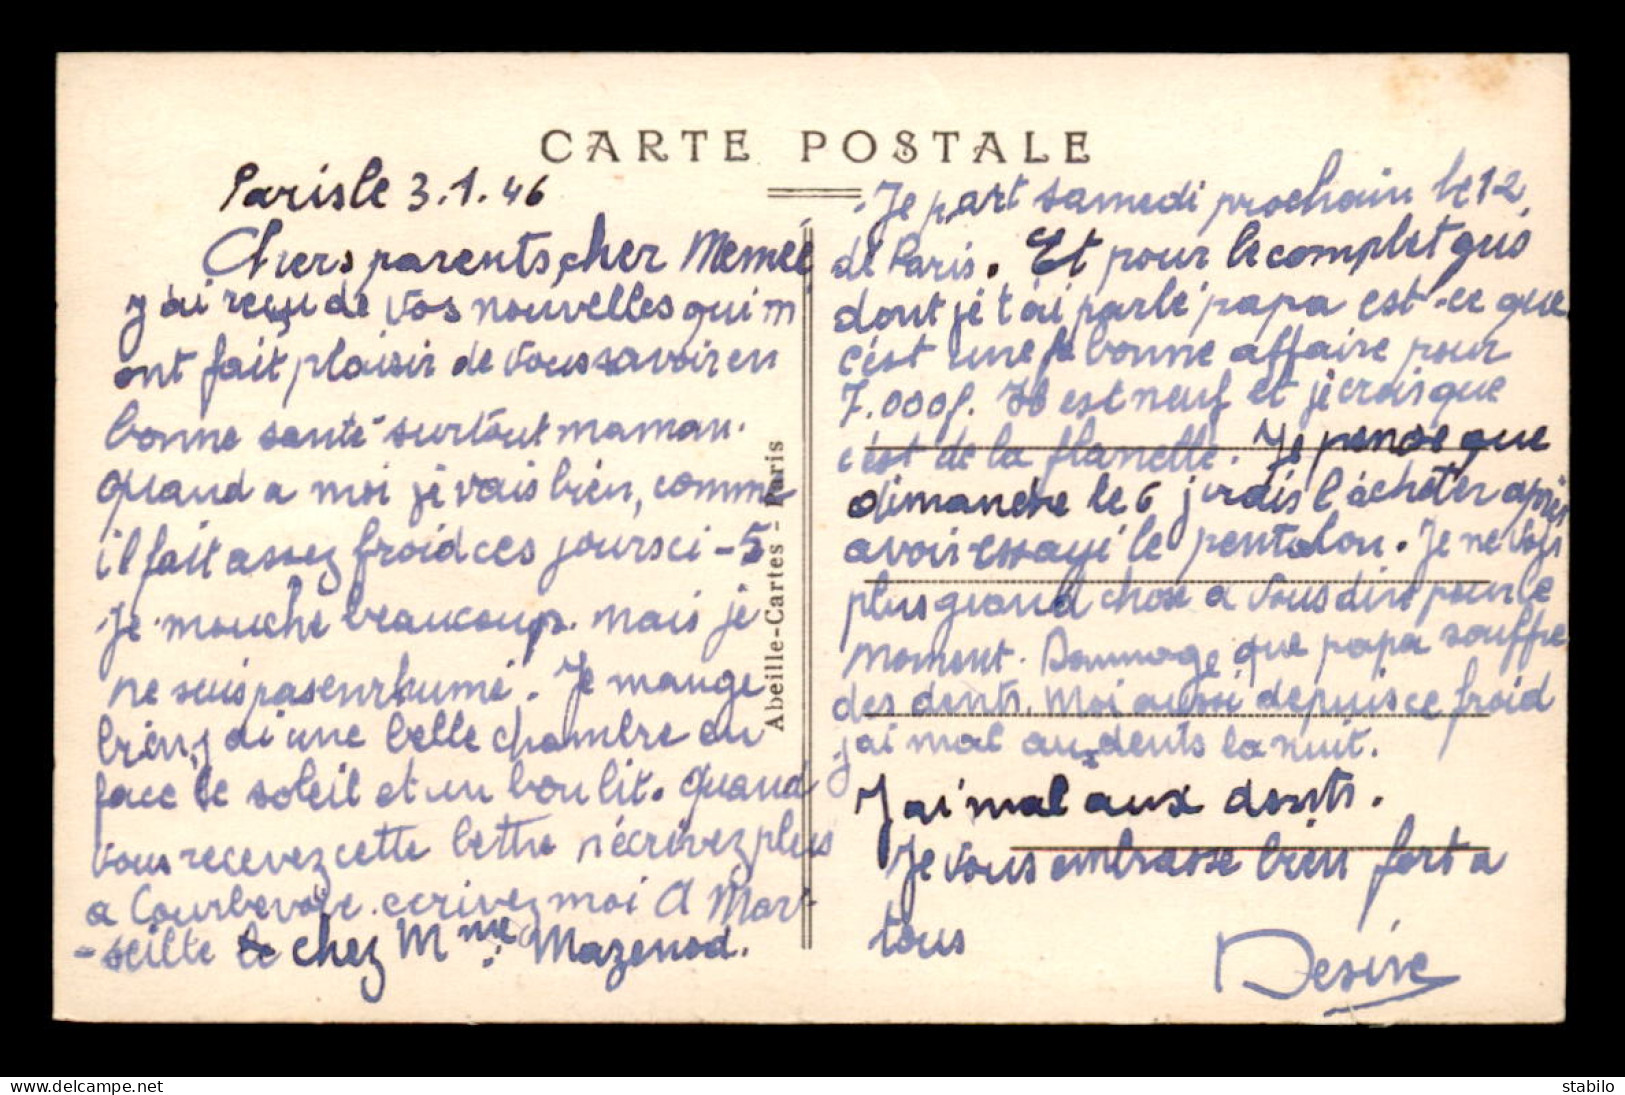 CARTE POSTALE
Paris le 3.1.46
Chers parents, cher Memeé
j'ai reçu de vos nouvelles qui m
ont fait plaisir de vous savoir en
bonne santé surtout maman.
Quand a moi je vais bien, comme
il fait assez froid ces jours ci -5
je mouche beaucoup. mais je
ne suis pas enrhumé. Je mange
bien, j ai une belle chambre en
face le soleil et un bon lit. Quand
vous recevez cette lettre n'écrivez plus
a Courbevoie. ecrivez moi a Mar-
-seille le chez Mme. Mazenod.
Abeille-Cartes - Paris
Je part samedi prochain le 12
de Paris. Et pour le complet gris
dont je t'ai parlé papa est-ce que
c'est une bonne affaire pour
7.000f. Il est neuf et je crois que
c'est de la flanelle. Je pense que
dimanche le 6 j irais l'acheter après
avoir essayé le pentalon. Je ne vois
plus grand chose a vous dire pour le
moment. Dommage que papa souffre
des dents. Moi aussi depuis ce froid
j'ai mal aux dents la nuit.
J ai mal aux dents.
Je vous embrasse bien fort a
tous
Desire
stabilo
lundi 10 octobre 2022